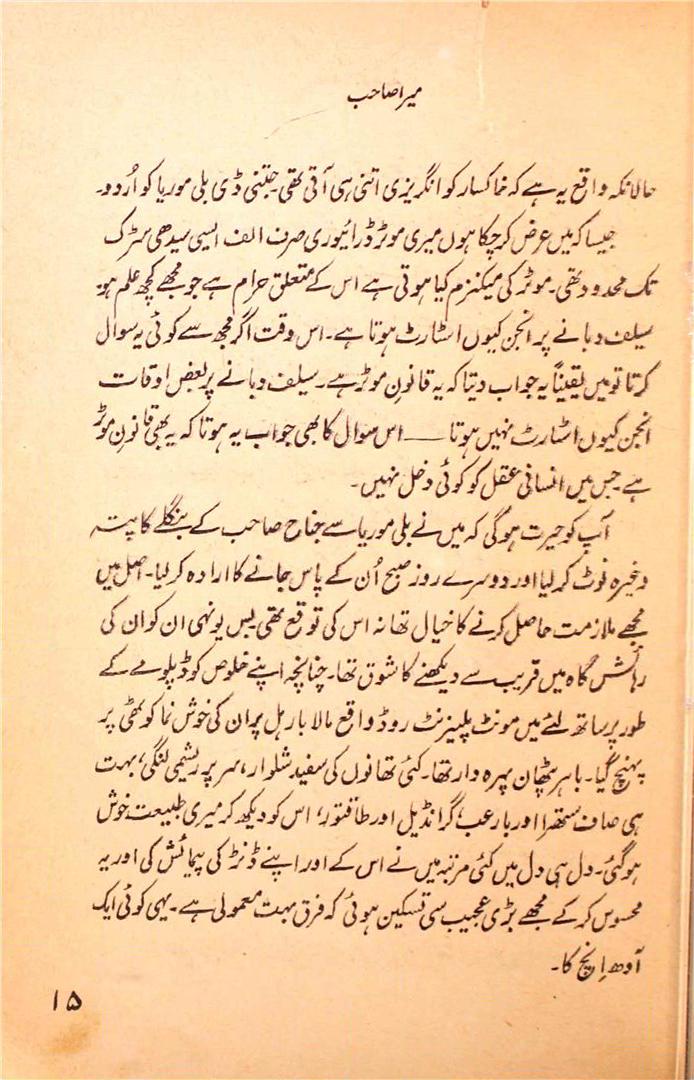 میرا صاحب
حالانکہ واقع یہ ہے کہ خاکسار کو انگریزی اتنی ہی آتی تھی۔ جتنی ڈی بلی موریا کو اُردو۔
جیسا کہ میں عرض کر چکا ہوں میری موٹر ڈرائیوری صرف الف ایسی سیدھی سڑک
تک محدود تھی۔ موٹر کی میکنزم کیا ہوتی ہے اس کے متعلق حرام ہے جو مجھے کچھ علم ہو۔
سیلف دبانے پر انجن کیوں اسٹارٹ ہوتا ہے۔ اس وقت اگر مجھ سے کوئی یہ سوال
کرتا تو میں یقیناً یہ جواب دیتا کہ یہ قانونِ موٹر ہے۔ سیلف دبانے پر بعض اوقات
انجن کیوں اسٹارٹ نہیں ہوتا ــــ اس سوال کا بھی جواب یہ ہوتا کہ یہ بھی قانونِ موٹر
ہے جس میں انسانی عقل کو کوئی دخل نہیں۔
آپ کو حیرت ہوگی کہ میں نے بلی موریا سے جناح صاحب کے بنگلے کا پتہ
وغیرہ نوٹ کر لیا اور دوسرے روز صبح اُن کے پاس جانے کا ارادہ کر لیا۔ اصل میں
مجھے ملازمت حاصل کرنے کا خیال تھا نہ اس کی توقع تھی بس یونہی ان کو ان کی
رہائش گاہ میں قریب سے دیکھنے کا شوق تھا۔ چنانچہ اپنے خلوص کو ڈپلومے کے
طور پر ساتھ لئے میں مونٹ پلیزنٹ روڈ واقع مالابار ہل پر ان کی خوش نما کوٹھی پر
پہنچ گیا۔ باہر پٹھان پہرہ دار تھا۔ کئی تھانوں کی سفید شلوار، سر پر ریشمی لنگی، بہت
ہی صاف ستھرا اور بارعب، گرانڈیل اور طاقتور، اس کو دیکھ کر میری طبیعت خوش
ہو گئی۔ دل ہی دل میں کئی مرتبہ میں نے اس کے اور اپنے ڈنڑ کی پیمائش کی اور یہ
محسوس کر کے مجھے بڑی عجیب سی تسکین ہوئی کہ فرق بہت معمولی ہے۔ یہی کوئی ایک
آدھ اِنچ کا۔
۱۵